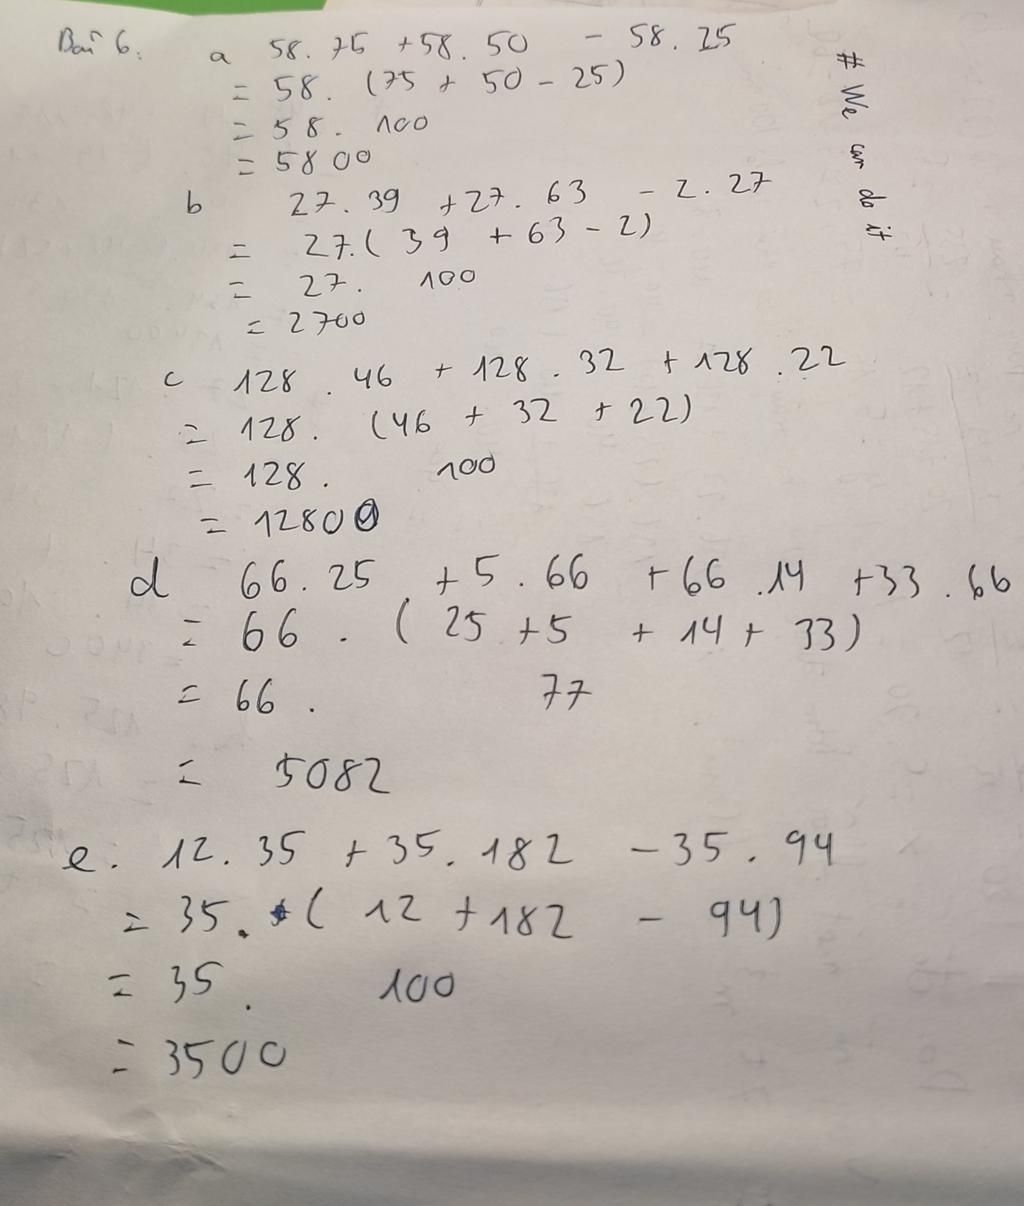 Bài 6. a 58. 75 + 58. 50 - 58. 25
= 58. (75 + 50 - 25)
= 58. 100
= 5800
b 27. 39 + 27. 63 - 2. 27
= 27.( 39 + 63 - 2)
= 27. 100
= 2700
c 128 . 46 + 128 . 32 + 128 . 22
= 128. (46 + 32 + 22)
= 128. 100
= 12800
d 66. 25 + 5. 66 + 66 .14 + 33 . 66
= 66 . ( 25 + 5 + 14 + 33)
= 66 . 77
= 5082
e. 12. 35 + 35. 182 - 35. 94
= 35. ( 12 + 182 - 94)
= 35. 100
= 3500
# We can do it